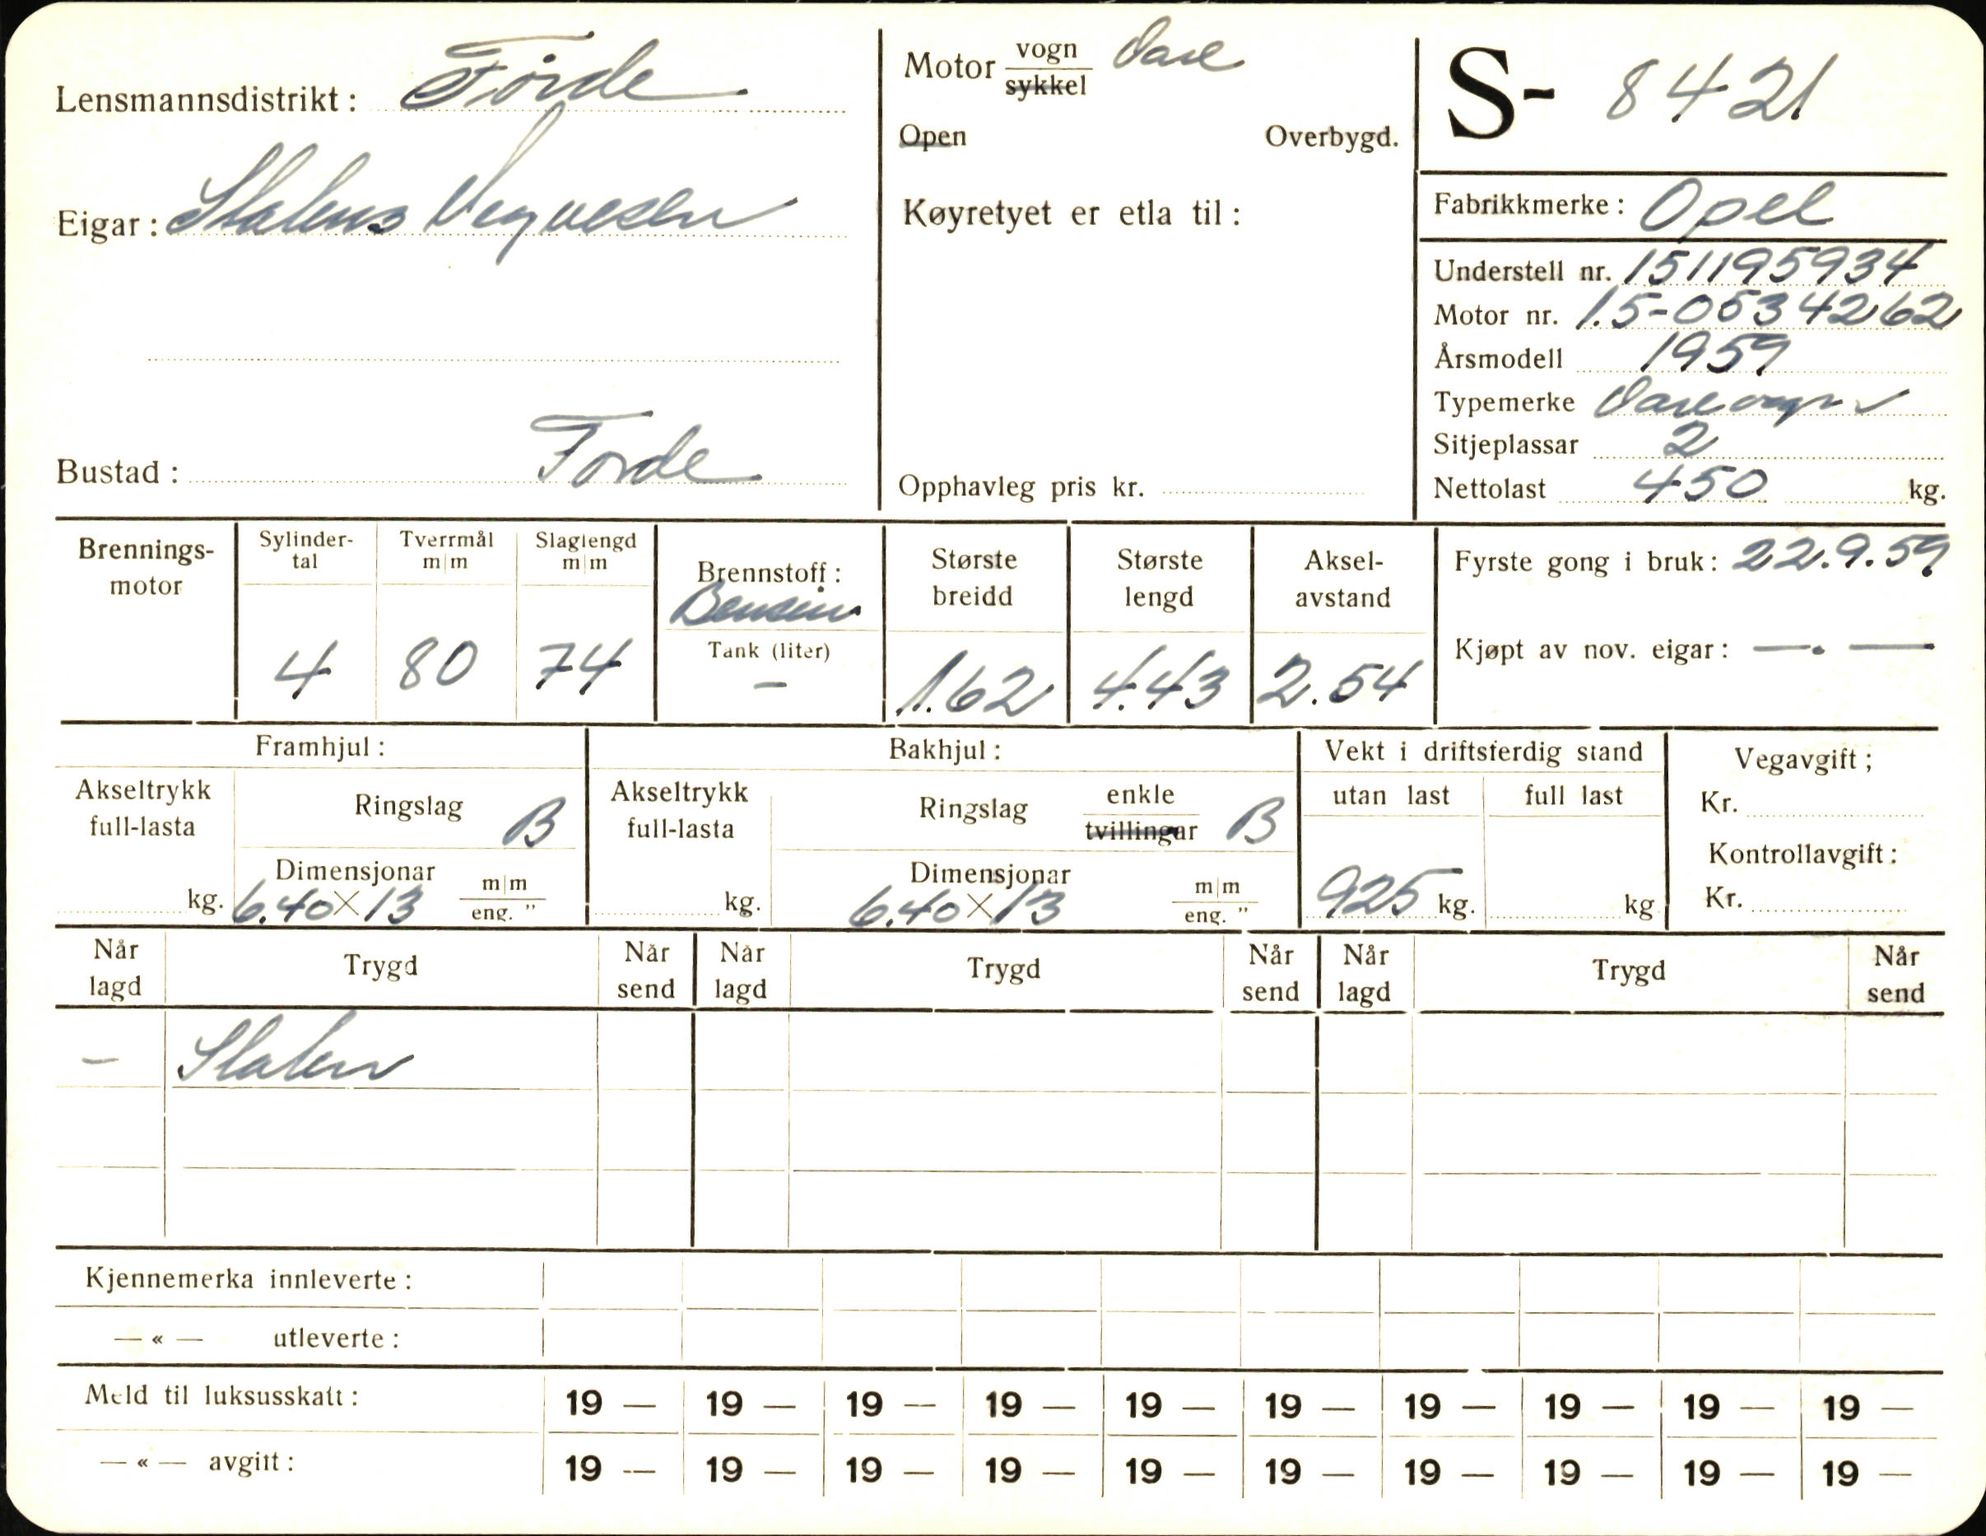 Lensmannsdistrikt: Førde
Eigar: Statens Vegvesen
Bustad: Førde
Motor vogn Vare
sykkel
Open Overbygd.
Køyretyet er etla til:
Opphavleg pris kr.
S- 8421
Fabrikkmerke: Opel
Understell nr. 151195934
Motor nr. 1.5-0534262
Årsmodell 1959
Typemerke Varevogn
Sitjeplassar 2
Nettolast 450 kg.
Brennings-
motor
Sylinder-
tal
4
Tverrmål
m|m
80
Slaglengd
m|m
74
Brennstoff:
Bensin
Tank (liter)
-
Største
breidd
1.62
Største
lengd
4.43
Aksel-
avstand
2.54
Fyrste gong i bruk: 22.9.59
Kjøpt av nov. eigar: —.—
Framhjul:
Akseltrykk
full-lasta
kg.
Ringslag B
Dimensjonar
6.40 × 13
m|m
eng. "
Bakhjul:
Akseltrykk
full-lasta
kg.
Ringslag enkle
tvillingar B
Dimensjonar
6.40 × 13
m|m
eng. "
Vekt i driftsferdig stand
utan last full last
925 kg. kg
Vegavgift;
Kr.
Kontrollavgift:
Kr.
Når
lagd
Trygd
Når
send
Når
lagd
Trygd
Når
send
Når
lagd
Trygd
Når
send
- Staten
Kjennemerka innleverte:
— « — utleverte:
Meld til luksusskatt: 19 — 19 — 19 — 19 — 19 — 19 — 19 — 19 — 19 — 19 —
— « — avgift: 19 — 19 — 19 — 19 — 19 — 19 — 19 — 19 — 19 — 19 —